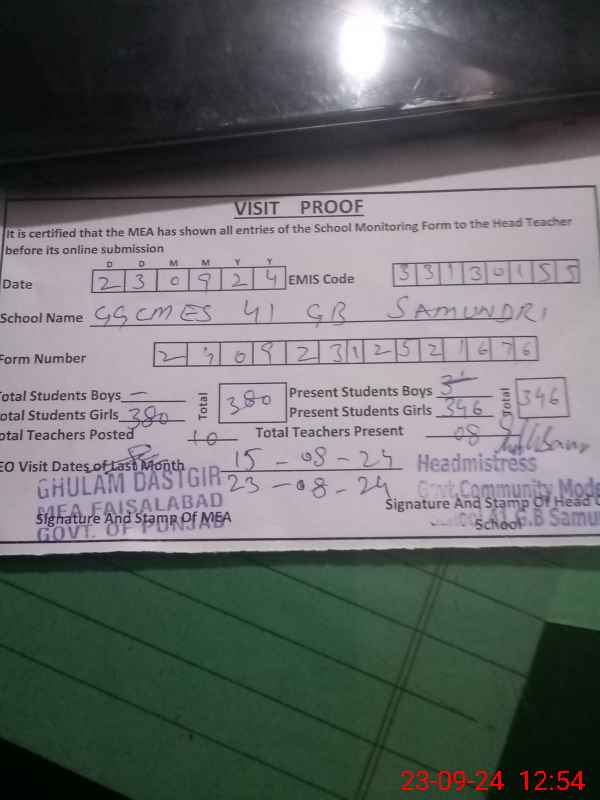 VISIT PROOF
It is certified that the MEA has shown all entries of the School Monitoring Form to the Head Teacher
before its online submission
D D M M Y Y
Date 2 3 0 9 2 4 EMIS Code 3 3 1 3 0 1 5 5
School Name GGCMES 41 GB SAMUNDRI
Form Number 2 4 0 9 2 3 1 2 5 2 1 6 7 6
otal Students Boys — Total 380 Present Students Boys Total 346
otal Students Girls 380 Present Students Girls 346
otal Teachers Posted 10 Total Teachers Present 08
EO Visit Dates of Last Month 15-08-24
23-08-24
GHULAM DASTGIR
MEA FAISALABAD
GOVT. OF PUNJAB
Signature And Stamp Of MEA
Headmistress
Govt. Community Mode
G.B Samu
Signature And Stamp Of Head
School
23-09-24 12:54